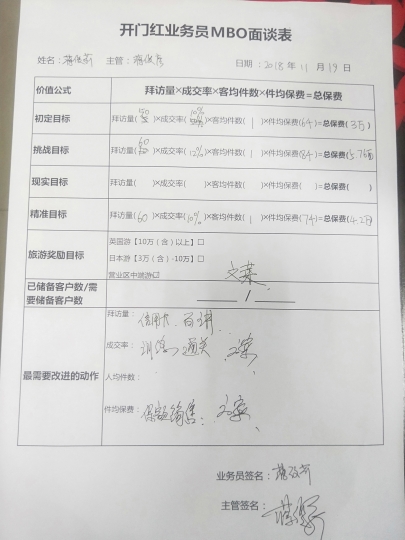 开门红业务员MBO面谈表
姓名: 主管: 日期:2018年11月19日
价值公式 拜访量×成交率×客均件数×件均保费=总保费
初定目标 拜访量(50)×成交率(10%)×客均件数(1)×件均保费(6千)=总保费(3万)
挑战目标 拜访量(60)×成交率(12%)×客均件数(1)×件均保费(8千)=总保费(5.76万)
现实目标 拜访量( )×成交率( )×客均件数( )×件均保费( )=总保费( )
精准目标 拜访量(60)×成交率(10%)×客均件数(1)×件均保费(7千)=总保费(4.2万)
旅游奖励目标
英国游【10万(含)以上】□
日本游【3万(含)-10万】□
营业区中顺游☑
已储备客户数/需要储备客户数 /
最需要改进的动作
拜访量:
信用卡、
成交率:
训练、通关、
人均件数:
件均保费: 保额销售:
业务员签名:
主管签名: